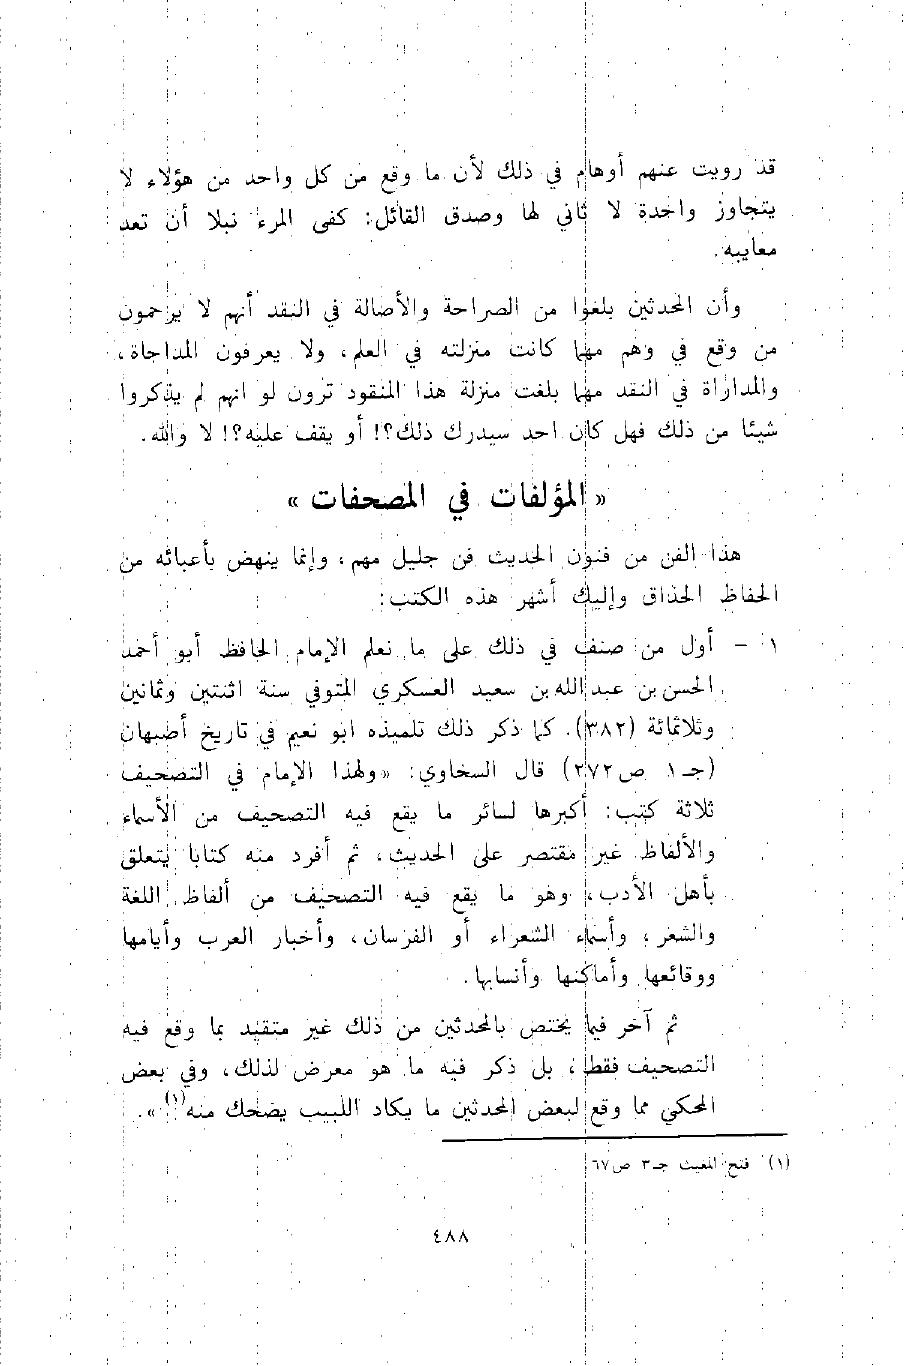 قد رويت عنهم أوهام في ذلك لأن ما وقع من كل واحد من هؤلاء لا
يتجاوز واحدة لا ثاني لها وصدق القائل: كفى المرء نبلا أن تعد
معايبه.
وأن المحدثين بلغوا من الصراحة والأصالة في النقد أنهم لا يرحمون
من وقع في وهم مهما كانت منزلته في العلم، ولا يعرفون المداجاة،
والمداراة في النقد مهما بلغت منزلة هذا المنقود ترون لو انهم لم يذكروا
شيئا من ذلك فهل كان احد سيدرك ذلك؟! أو يقف عليه؟! لا والله.
« المؤلفات في المصحفات »
هذا الفن من فنون الحديث فن جليل مهم، وإنما ينهض بأعبائه من
الحفاظ الحذاق وإليك أشهر هذه الكتب:
١ - أول من صنف في ذلك على ما نعلم الإمام الحافظ أبو أحمد
الحسن بن عبد الله بن سعيد العسكري المتوفي سنة اثنتين وثمانين
وثلاثمائة (٣٨٢). كما ذكر ذلك تلميذه ابو نعيم في تاريخ أصبهان
(جـ ١ ص ٢٧٢) قال السخاوي: «ولهذا الإمام في التصحيف
ثلاثة كتب: أكبرها لسائر ما يقع فيه التصحيف من الأسماء
والألفاظ غير مقتصر على الحديث، ثم أفرد منه كتابا يتعلق
بأهل الأدب، وهو ما يقع فيه التصحيف من ألفاظ اللغة
والشعر، وأسماء الشعراء أو الفرسان، وأخبار العرب وأيامها
ووقائعها وأماكنها وأنسابها.
ثم آخر فيما يختص بالمحدثين من ذلك غير متقيد بما وقع فيه
التصحيف فقط، بل ذكر فيه ما هو معرض لذلك، وفي بعض
المحكي مما وقع لبعض المحدثين ما يكاد اللبيب يضحك منه(١)».
(١) فتح المغيث جـ ٣ ص ٦٧
٤٨٨